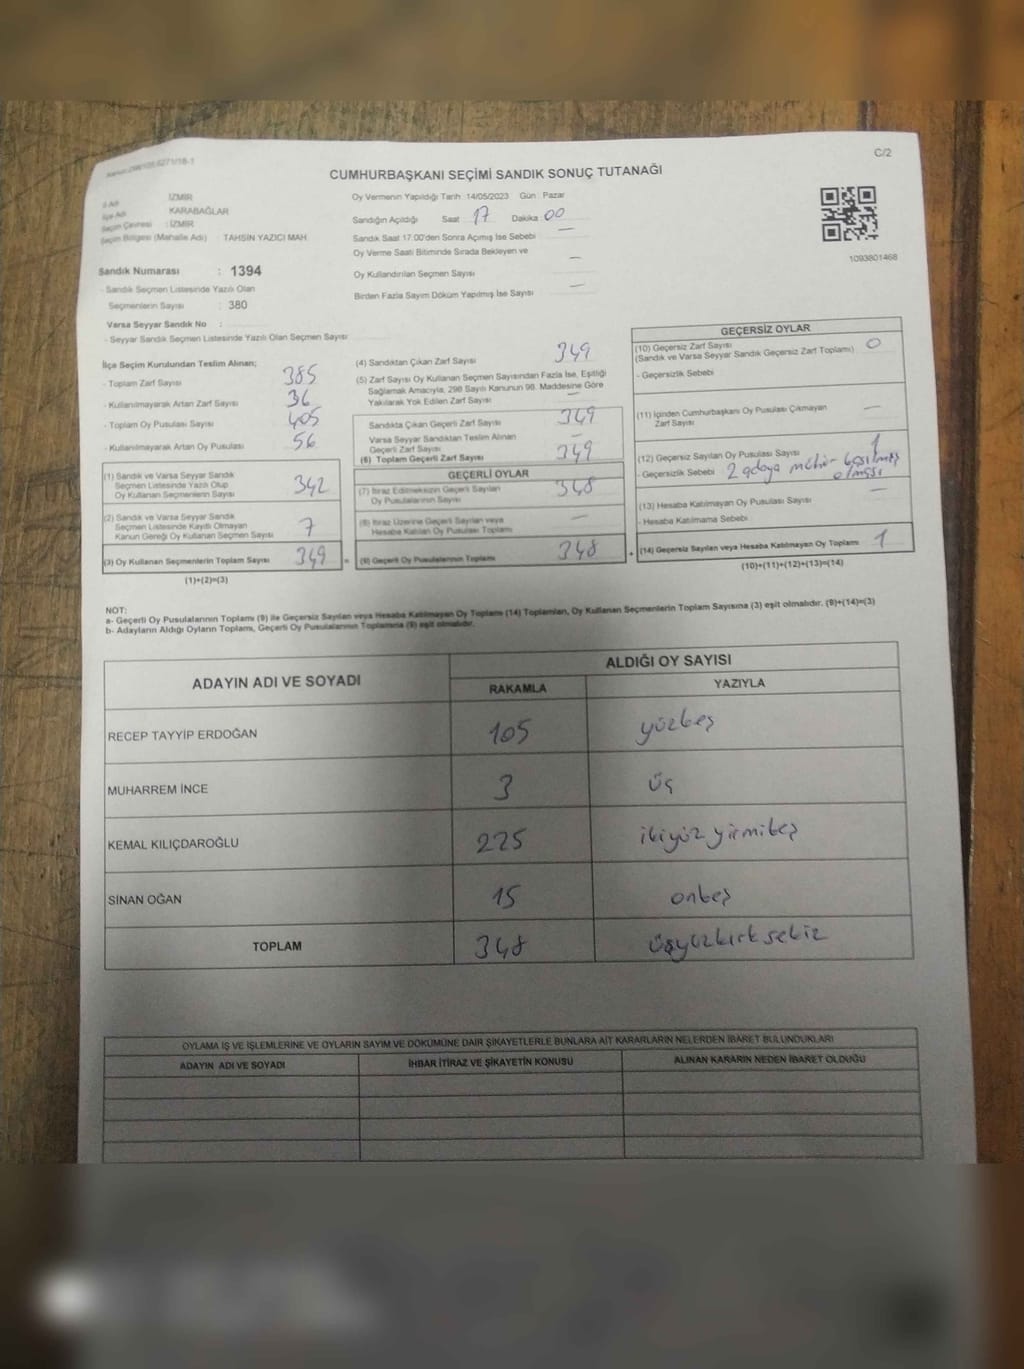 C/2
CUMHURBAŞKANI SEÇİMİ SANDIK SONUÇ TUTANAĞI
İl Adı : İZMİR
İlçe Adı : KARABAĞLAR
Seçim Çevresi : İZMİR
Seçim Bölgesi (Mahalle Adı) : TAHSİN YAZICI MAH.
Sandık Numarası : 1394
- Sandık Seçmen Listesinde Yazılı Olan
Seçmenlerin Sayısı : 380
Varsa Seyyar Sandık No :
- Seyyar Sandık Seçmen Listesinde Yazılı Olan Seçmen Sayısı
Oy Vermenin Yapıldığı Tarih :14/05/2023 Gün : Pazar
Sandığın Açıldığı Saat 17 Dakika 00
Sandık Saat 17.00'den Sonra Açımış İse Sebebi —
Oy Verme Saati Bitiminde Sırada Bekleyen ve
Oy Kullandırılan Seçmen Sayısı —
Birden Fazla Sayım Döküm Yapılmış İse Sayısı —
1093801468
İlçe Seçim Kurulundan Teslim Alınan;
- Toplam Zarf Sayısı 385
- Kullanılmayarak Artan Zarf Sayısı 36
- Toplam Oy Pusulası Sayısı 405
- Kullanılmayarak Artan Oy Pusulası 56
(1) Sandık ve Varsa Seyyar Sandık
Seçmen Listesinde Yazılı Olup
Oy Kullanan Seçmenlerin Sayısı 342
(2) Sandık ve Varsa Seyyar Sandık
Seçmen Listesinde Kayıtlı Olmayan
Kanun Gereği Oy Kullanan Seçmen Sayısı 7
(3) Oy Kullanan Seçmenlerin Toplam Sayısı 349 =
(1)+(2)=(3)
(4) Sandıktan Çıkan Zarf Sayısı 349
(5) Zarf Sayısı Oy Kullanan Seçmen Sayısından Fazla İse, Eşitliği
Sağlamak Amacıyla, 298 Sayılı Kanunun 98. Maddesine Göre
Yakılarak Yok Edilen Zarf Sayısı —
Sandıkta Çıkan Geçerli Zarf Sayısı 349
Varsa Seyyar Sandıktan Teslim Alınan
Geçerli Zarf Sayısı —
(6) Toplam Geçerli Zarf Sayısı 349
GEÇERLİ OYLAR
(7) İtiraz Edilmeksizin Geçerli Sayılan
Oy Pusulalarının Sayısı 348
(8) İtiraz Üzerine Geçerli Sayılan veya
Hesaba Katılan Oy Pusulası Toplamı —
(9) Geçerli Oy Pusulalarının Toplamı 348 +
GEÇERSİZ OYLAR
(10) Geçersiz Zarf Sayısı
(Sandık ve Varsa Seyyar Sandık Geçersiz Zarf Toplamı) 0
- Geçersizlik Sebebi
(11) İçinden Cumhurbaşkanı Oy Pusulası Çıkmayan
Zarf Sayısı —
(12) Geçersiz Sayılan Oy Pusulası Sayısı 1
- Geçersizlik Sebebi 2 adaya mühür basılmış
olması
(13) Hesaba Katılmayan Oy Pusulası Sayısı —
- Hesaba Katılmama Sebebi
(14) Geçersiz Sayılan veya Hesaba Katılmayan Oy Toplamı 1
(10)+(11)+(12)+(13)=(14)
NOT:
a- Geçerli Oy Pusulalarının Toplamı (9) ile Geçersiz Sayılan veya Hesaba Katılmayan Oy Toplamı (14) Toplamları, Oy Kullanan Seçmenlerin Toplam Sayısına (3) eşit olmalıdır. (9)+(14)=(3)
b- Adayların Aldığı Oyların Toplamı, Geçerli Oy Pusulalarının Toplamına (9) eşit olmalıdır.
ADAYIN ADI VE SOYADI ALDIĞI OY SAYISI
RAKAMLA YAZIYLA
RECEP TAYYİP ERDOĞAN 105 yüzbeş
MUHARREM İNCE 3 üç
KEMAL KILIÇDAROĞLU 225 ikiyüz yirmibeş
SİNAN OĞAN 15 onbeş
TOPLAM 348 üçyüzkırk sekiz
OYLAMA İŞ VE İŞLEMLERİNE VE OYLARIN SAYIM VE DÖKÜMÜNE DAİR ŞİKAYETLERLE BUNLARA AİT KARARLARIN NELERDEN İBARET BULUNDUKLARI
ADAYIN ADI VE SOYADI İHBAR İTİRAZ VE ŞİKAYETİN KONUSU ALINAN KARARIN NEDEN İBARET OLDUĞU